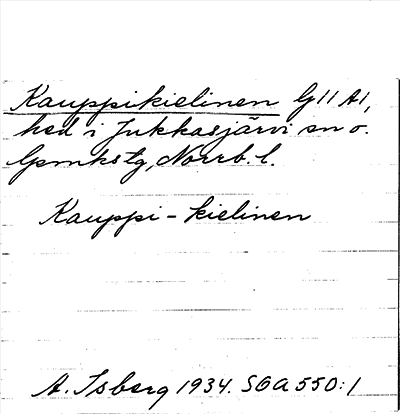 Kauppikielinen G11 A1,
hed i Jukkasjärvi sn o.
lpmkstg, Norrb. l.
Kauppi-kielinen
A. Isberg 1934. SGA 550:1